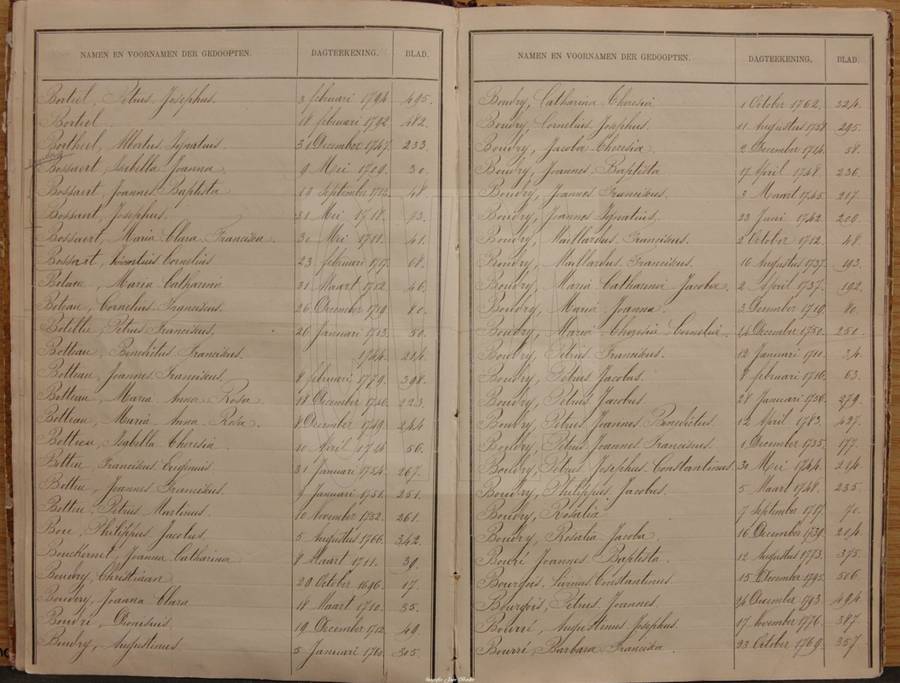 NAMEN EN VOORNAMEN DER GEDOOPTEN. DAGTEEKENING. BLAD.
Bortiel, Petrus Josephus. 3 februari 1794. 495.
Bortiel 18 februari 1792. 482.
Borthiel, Albertus Ignatius. 31 December 1747. 233.
Bossaert, Isabella Joanna. 9 Mei 1709. 30.
Bossaert, Joannes Baptista 18 September 1712. 48.
Bossaert, Josephus. 21 Mei 1718. 73.
Bossaert, Maria Clara Francisca. 30 Mei 1711. 41.
Bossaert, Cornelius 23 februari 1717. 68.
Maria Catharina 31 Maart 1712. 46.
Cornelius Franciscus. 26 December 1719. 80.
Petrus Franciscus. 26 Januari 1713. 50.
Botteau, Benedictus Franciscus. 1744. 224.
Botteau, Joannes Franciscus. 8 februari 1779. 398.
Botteau, Maria Anna Rosa 18 December 1746. 223.
Botteau, Maria Anna Rosa. 8 December 1749. 244.
Isabella Theresia 10 April 1714 56.
Franciscus Eugenius 31 Januari 1754. 267.
Joannes Franciscus. Januari 1751. 251.
Petrus Martinus. 10 November 1752. 261.
Philippus Jacobus. 5 Augustus 1766. 342.
Joanna Catharina 8 Maart 1711. 39.
Boudry, Christiaan 28 October 1696. 17.
Boudery, Joanna Clara 18 Maart 1710. 35.
Boudri, Dionisius 19 December 1712. 49.
Boudry, Augustinus 5 Januari 1760. 305.
NAMEN EN VOORNAMEN DER GEDOOPTEN. DAGTEEKENING. BLAD.
Boudry, Catharina Theresia 1 October 1762. 324.
Boudry, Cornelius Josephus. 11 Augustus 1758. 295.
Boudry, Jacoba Theresia 2 December 1714. 58.
Boudry, Joannes Baptista 17 April 1748. 236.
Boudry, Joannes Franciscus. 3 Maart 1745. 217.
Boudry, Joannes Ignatius. 23 Juni 1742. 200.
Boudry, Maillardus Franciscus. 2 October 1712. 48.
Boudry, Maillardus Franciscus. 16 Augustus 1737. 193.
Boudry, Maria Catharina Jacoba 2 April 1737. 192.
Boudry, Maria Joanna. 3 December 1719. 80.
Boudry, Maria Theresia Cornelia. 24 December 1750. 250.
Boudry, Petrus Franciscus. 12 Januari 1711. 34.
Boudry, Petrus Jacobus. 8 februari 1716. 63.
Boudry, Petrus Jacobus. 28 Januari 1756. 279.
Boudry, Petrus Joannes Benedictus 12 April 1783. 427.
Boudry, Petrus Joannes Franciscus. 1 December 1735. 177.
Boudry, Petrus Josephus Constantinus 30 Mei 1744. 214.
Boudry, Philippus Jacobus. 5 Maart 1748. 235.
Boudry, Rosalia 7 September 1717. 70.
Boudry, Rosalia Jacoba. 16 December 1739. 204.
Bouré Joannes Baptista. 12 Augustus 1773. 375.
Bourgois, Constantinus 15 December 1795. 506.
Bourgois, Petrus Joannes. 26 December 1793. 494.
Bourré, Augustinus Josephus. 17 November 1776. 387.
Bourré, Barbara Francisca. 23 October 1769. 357